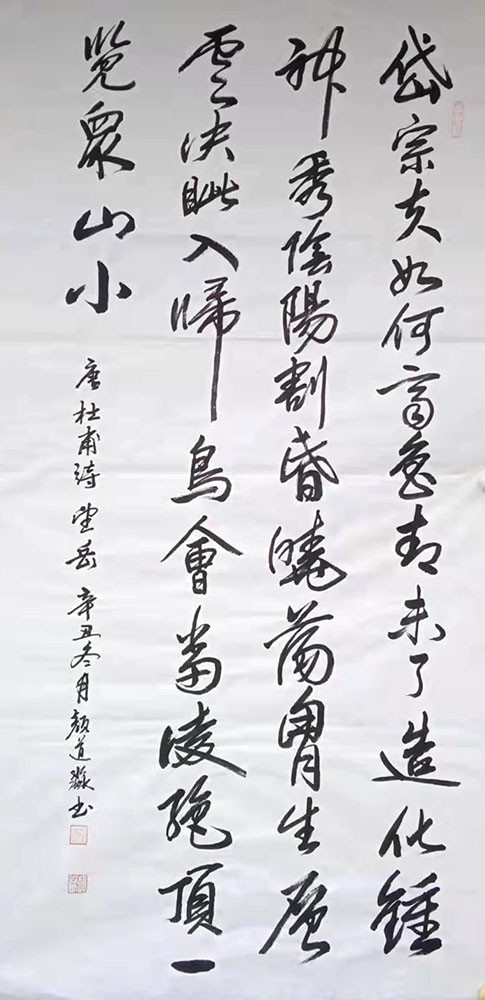 岱宗夫如何齊魯青未了造化鍾
神秀陰陽割昏曉蕩胷生層
雲決眦入歸鳥會當凌絕頂一
覽眾山小
唐杜甫詩望岳辛丑冬月顏道淼书